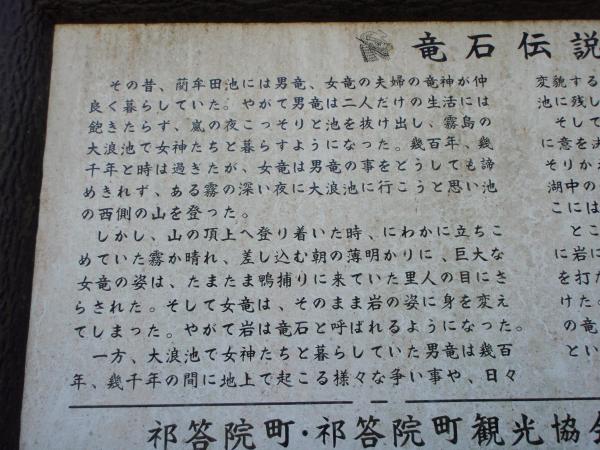 竜石伝説
その昔、藺牟田池には男竜、女竜の夫婦の竜神が仲
良く暮らしていた。やがて男竜は二人だけの生活には
飽きたらず、嵐の夜こっそりと池を抜け出し、霧島の
大浪池で女神たちと暮らすようになった。幾百年、幾
千年と時は過ぎたが、女竜は男竜の事をどうしても諦
めきれず、ある霧の深い夜に大浪池に行こうと思い池
の西側の山を登った。
しかし、山の頂上へ登り着いた時、にわかに立ちこ
めていた霧か晴れ、差し込む朝の薄明かりに、巨大な
女竜の姿は、たまたま鴨捕りに来ていた里人の目にさ
らされた。そして女竜は、そのまま岩の姿に身を変え
てしまった。やがて岩は竜石と呼ばれるようになった。
一方、大浪池で女神たちと暮らしていた男竜は幾百
年、幾千年の間に地上て起こる様々な争い事や、日々
変貌する
池に残し
そして
に意を決
そりかえ
湖中の
こには
とこ
に岩に
を打た
けた。
の竜
とい
祁答院町・祁答院町観光協会